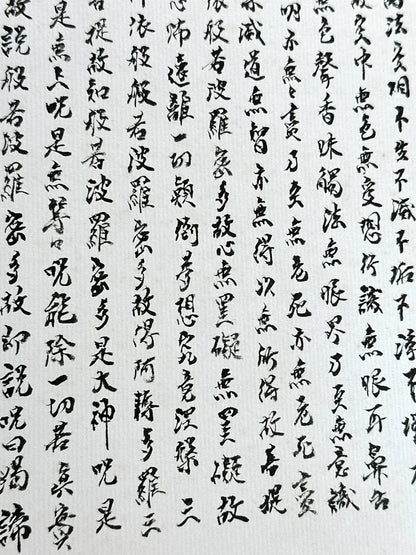 法空相不生不滅不垢不淨
故空中無色無受想行識無眼耳鼻舌
無色聲香味觸法無眼界乃至無意識
明亦無〻盡乃至無老死亦無老死盡
滅道無智亦無得以無所得故菩提
依般若波羅蜜多故心無罣礙無罣礙故
恐怖遠離一切顛倒夢想究竟涅槃三
依般般若波羅蜜多故得阿耨多羅三
菩提故知般若波羅蜜多是大神呪是
是無上呪是無等〻呪能除一切苦真實
故說般若波羅蜜多故即說呪曰揭諦